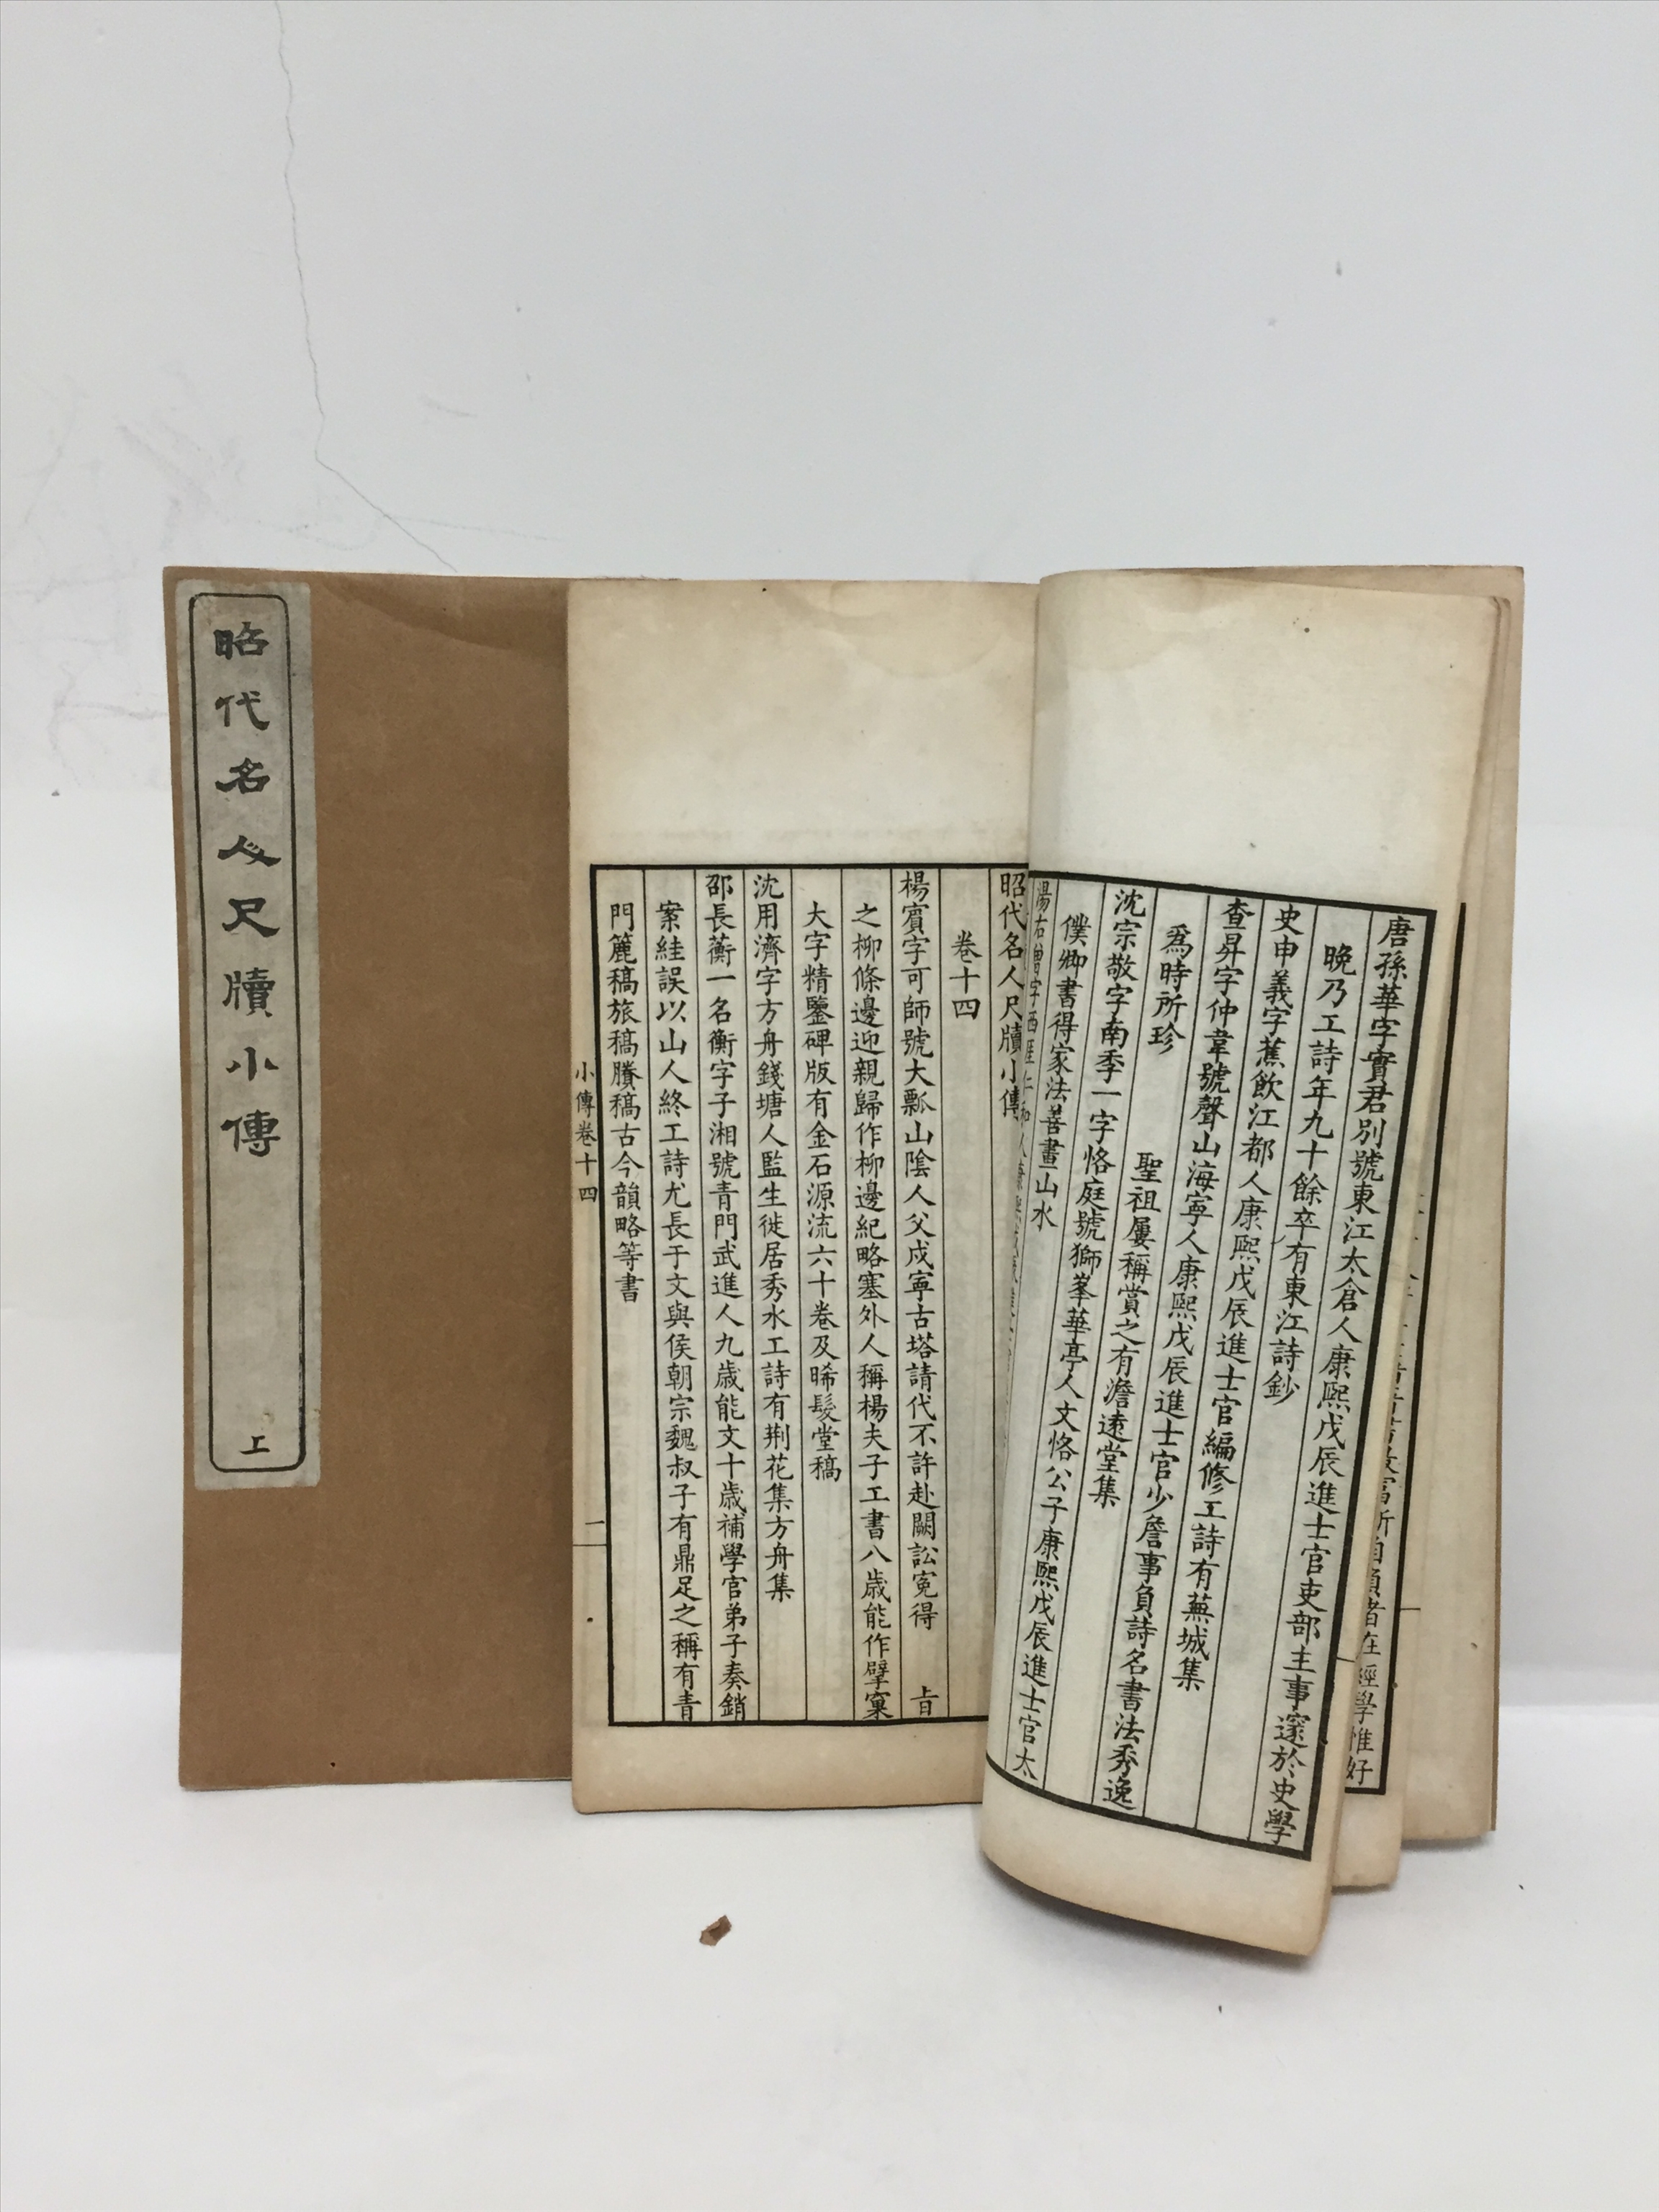 昭代名人尺牘小傳
上
唐孫華字實君別號東江太倉人康熙戊辰進士官吏部主事邃於史學
晚乃工詩年九十餘卒有東江詩鈔
史申義字蕉飲江都人康熙戊辰進士官編修工詩有蕪城集
查昇字仲韋號聲山海寧人康熙戊辰進士官少詹事負詩名書法秀逸
爲時所珍 聖祖屢稱賞之有澹遠堂集
沈宗敬字南季一字恪庭號獅峯華亭人文恪公子康熙戊辰進士官太
僕卿書得家法善畫山水
湯右曾字西厓仁和人康熙
昭代名人尺牘小傳
卷十四
楊賓字可師號大瓢山陰人父戍寧古塔請代不許赴闕訟冤得 上旨
之柳條邊迎親歸作柳邊紀略塞外人稱楊夫子工書八歲能作擘窠
大字精鑒碑版有金石源流六十卷及晞髮堂稿
沈用濟字方舟錢塘人監生徙居秀水工詩有荆花集方舟集
邵長蘅一名衡字子湘號青門武進人九歲能文十歲補學官弟子奏銷
案絓誤以山人終工詩尤長于文與侯朝宗魏叔子有鼎足之稱有青
門簏稿旅稿賸稿古今韻略等書
小傳卷十四
一
經學惟好